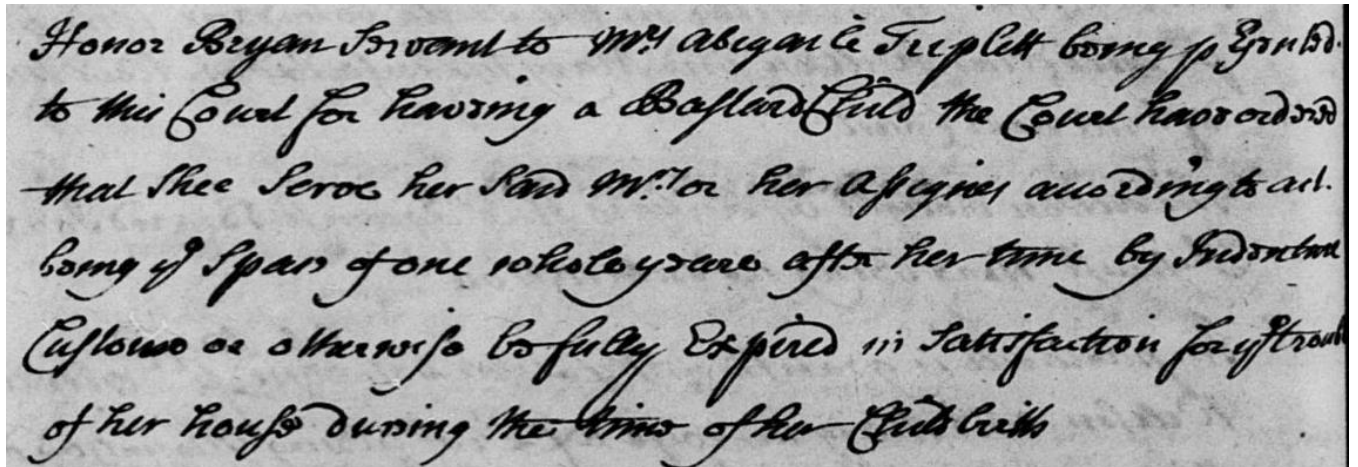 Honor Bryan Servant to Mrs Abigaile Triplett being psented
to this Court for haveing a Bastard Child the Court have ordered
that Shee Serve her Said Mrs or her Assignes according to act.
being ye Space of one whole yeare after her time by Indenture
Custome or otherwise be fully Expired in Satisfaction for ye trouble
of her house dureing the time of her Childbirth